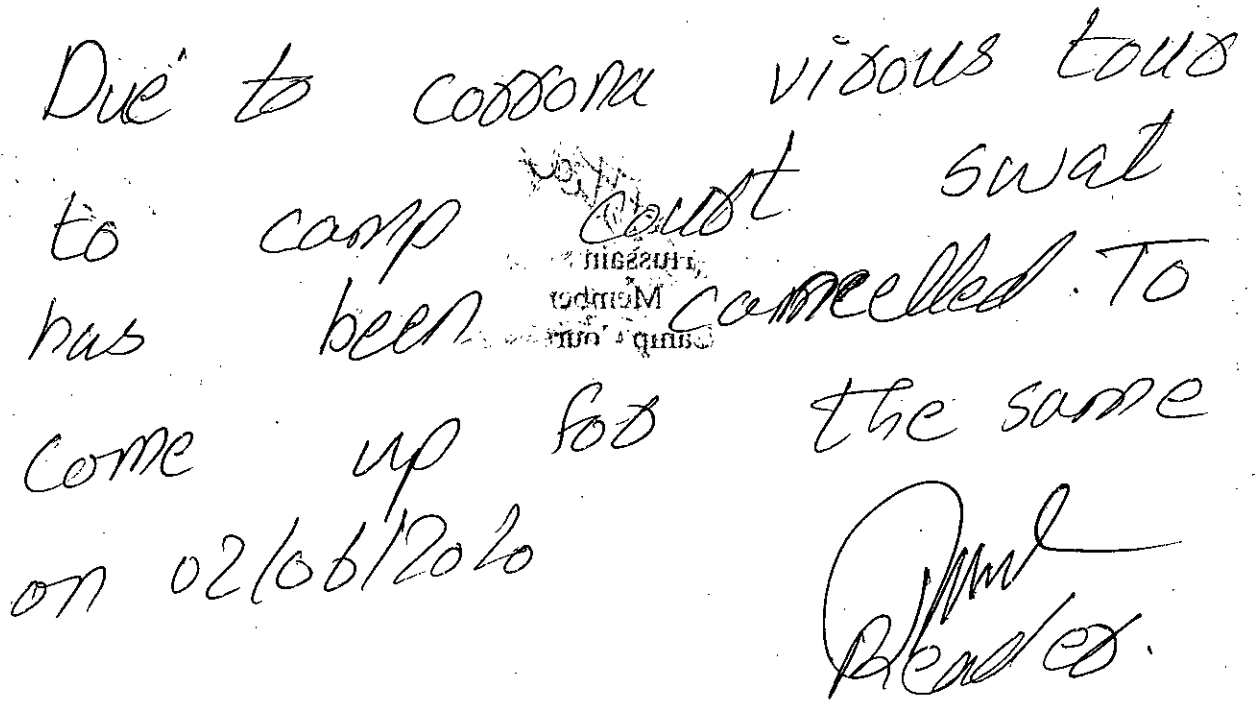 Due to corrona virous tour
to camp court swat
has been cancelled. To
come up for the same
on 02/06/2020
Reader.
Hussain
Member
Camp Court